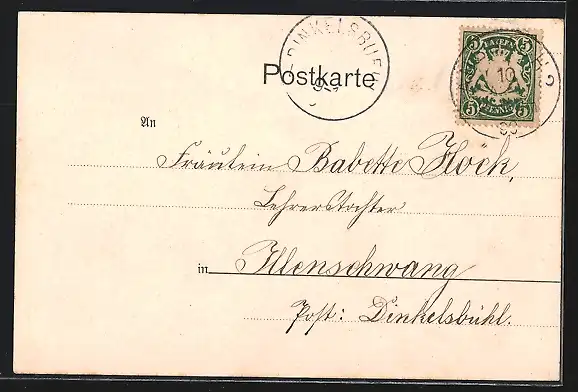 DINKELSBUEHL
Postkarte
BAYERN
5 5
10
PFENNIG
5 5
An
Fräulein Babette Hock,
Lehrerstochter
in Illenschwang
Post: Dinkelsbühl.